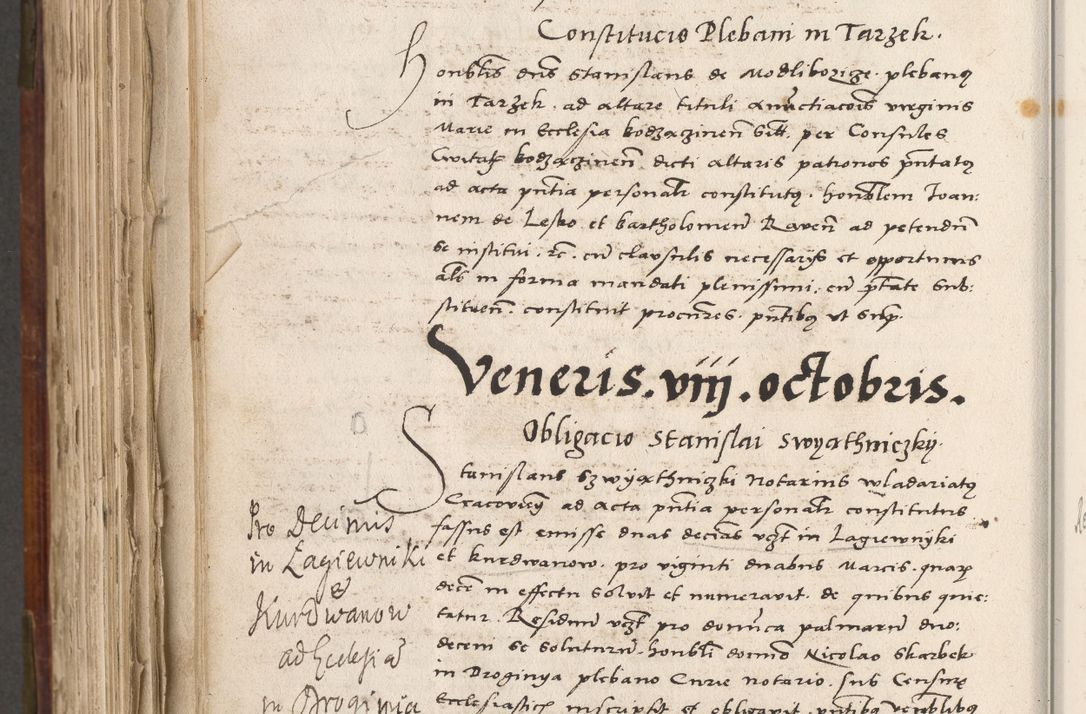 Constitucio Plebani in Tarzek.
Honbͫlis dns Stanislaus de Modliborzicze. plebanus
in Tarzek. ad altare tituli Anūctiacois virginis
Marie in Ecclesia bodzaczinen̄ sitt. per Consules
Civitat bodzaczinen̄. dicti altaris patronos pn̄tatus
ad acta pn̄tia personalr constitutus. honblem Ioan:
nem de Lesko et bartholomeū Raven̄ ad petendū
se institui. rc. cū clausulis necessariis et opportunis
als in forma mandati plenissimi. cū ptate sub:
stituen̄. constituit procures. pn̄tibus ut sup.
Veneris. viij. octobris.
Obligacio Stanislai Swyathniczky.
Stanislaus Szwyathniczki Notarius wladariatus
Cracovien̄ ad acta pn̄tia personalr constitutus
fassus est emisse duas decias vczt in Lagiewnyki
et kurdwanow. pro viginti duabus Marcis. quarum
decē in effectu solvit et numeravit. de quibus quie:
tatur. Residuū vczt pro domīca palmarū duo:
decem se soluturū. honbli domino Nicolao Skarbek
in Droginya plebano Curie notario. sub Censuris
Ecclesiasticis inscripsit et obligavit. pn̄tibus venblibus
Pro Decimis
in Łagiewniki
&
Kurdwanow
ad Ecclesiā
in Droginia